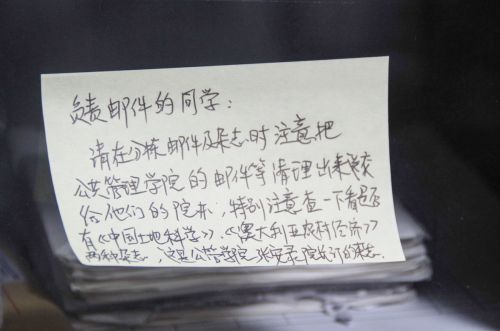 负责邮件的同学：
请在分拣邮件及杂志时注意把
公共管理学院的邮件等清理出来
给他们的院办，特别注意查一下看是否
有《中国土地科学》、《澳大利亚农村经济》
两种杂志，这是公管学院 院 订的杂志